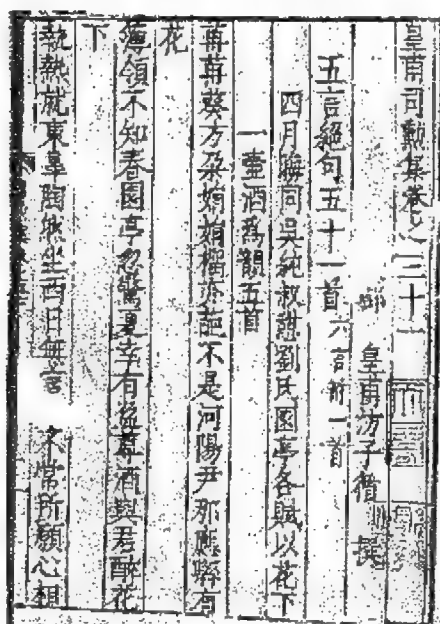 皇甫司勳集卷之三十一
皇甫汸子循 撰
五言絕句五十一首 六言附一首
四月晦同吳純叔劉氏園亭各賦以花下
一壺酒為韻五首
苒苒葵方朶娟娟榴亦葩不是河陽尹那應縣有
花
簿領不知春園亭忽驚夏幸有尊酒與君醉花
下
執熱就東皋陶然坐西日無言 不常所願心相